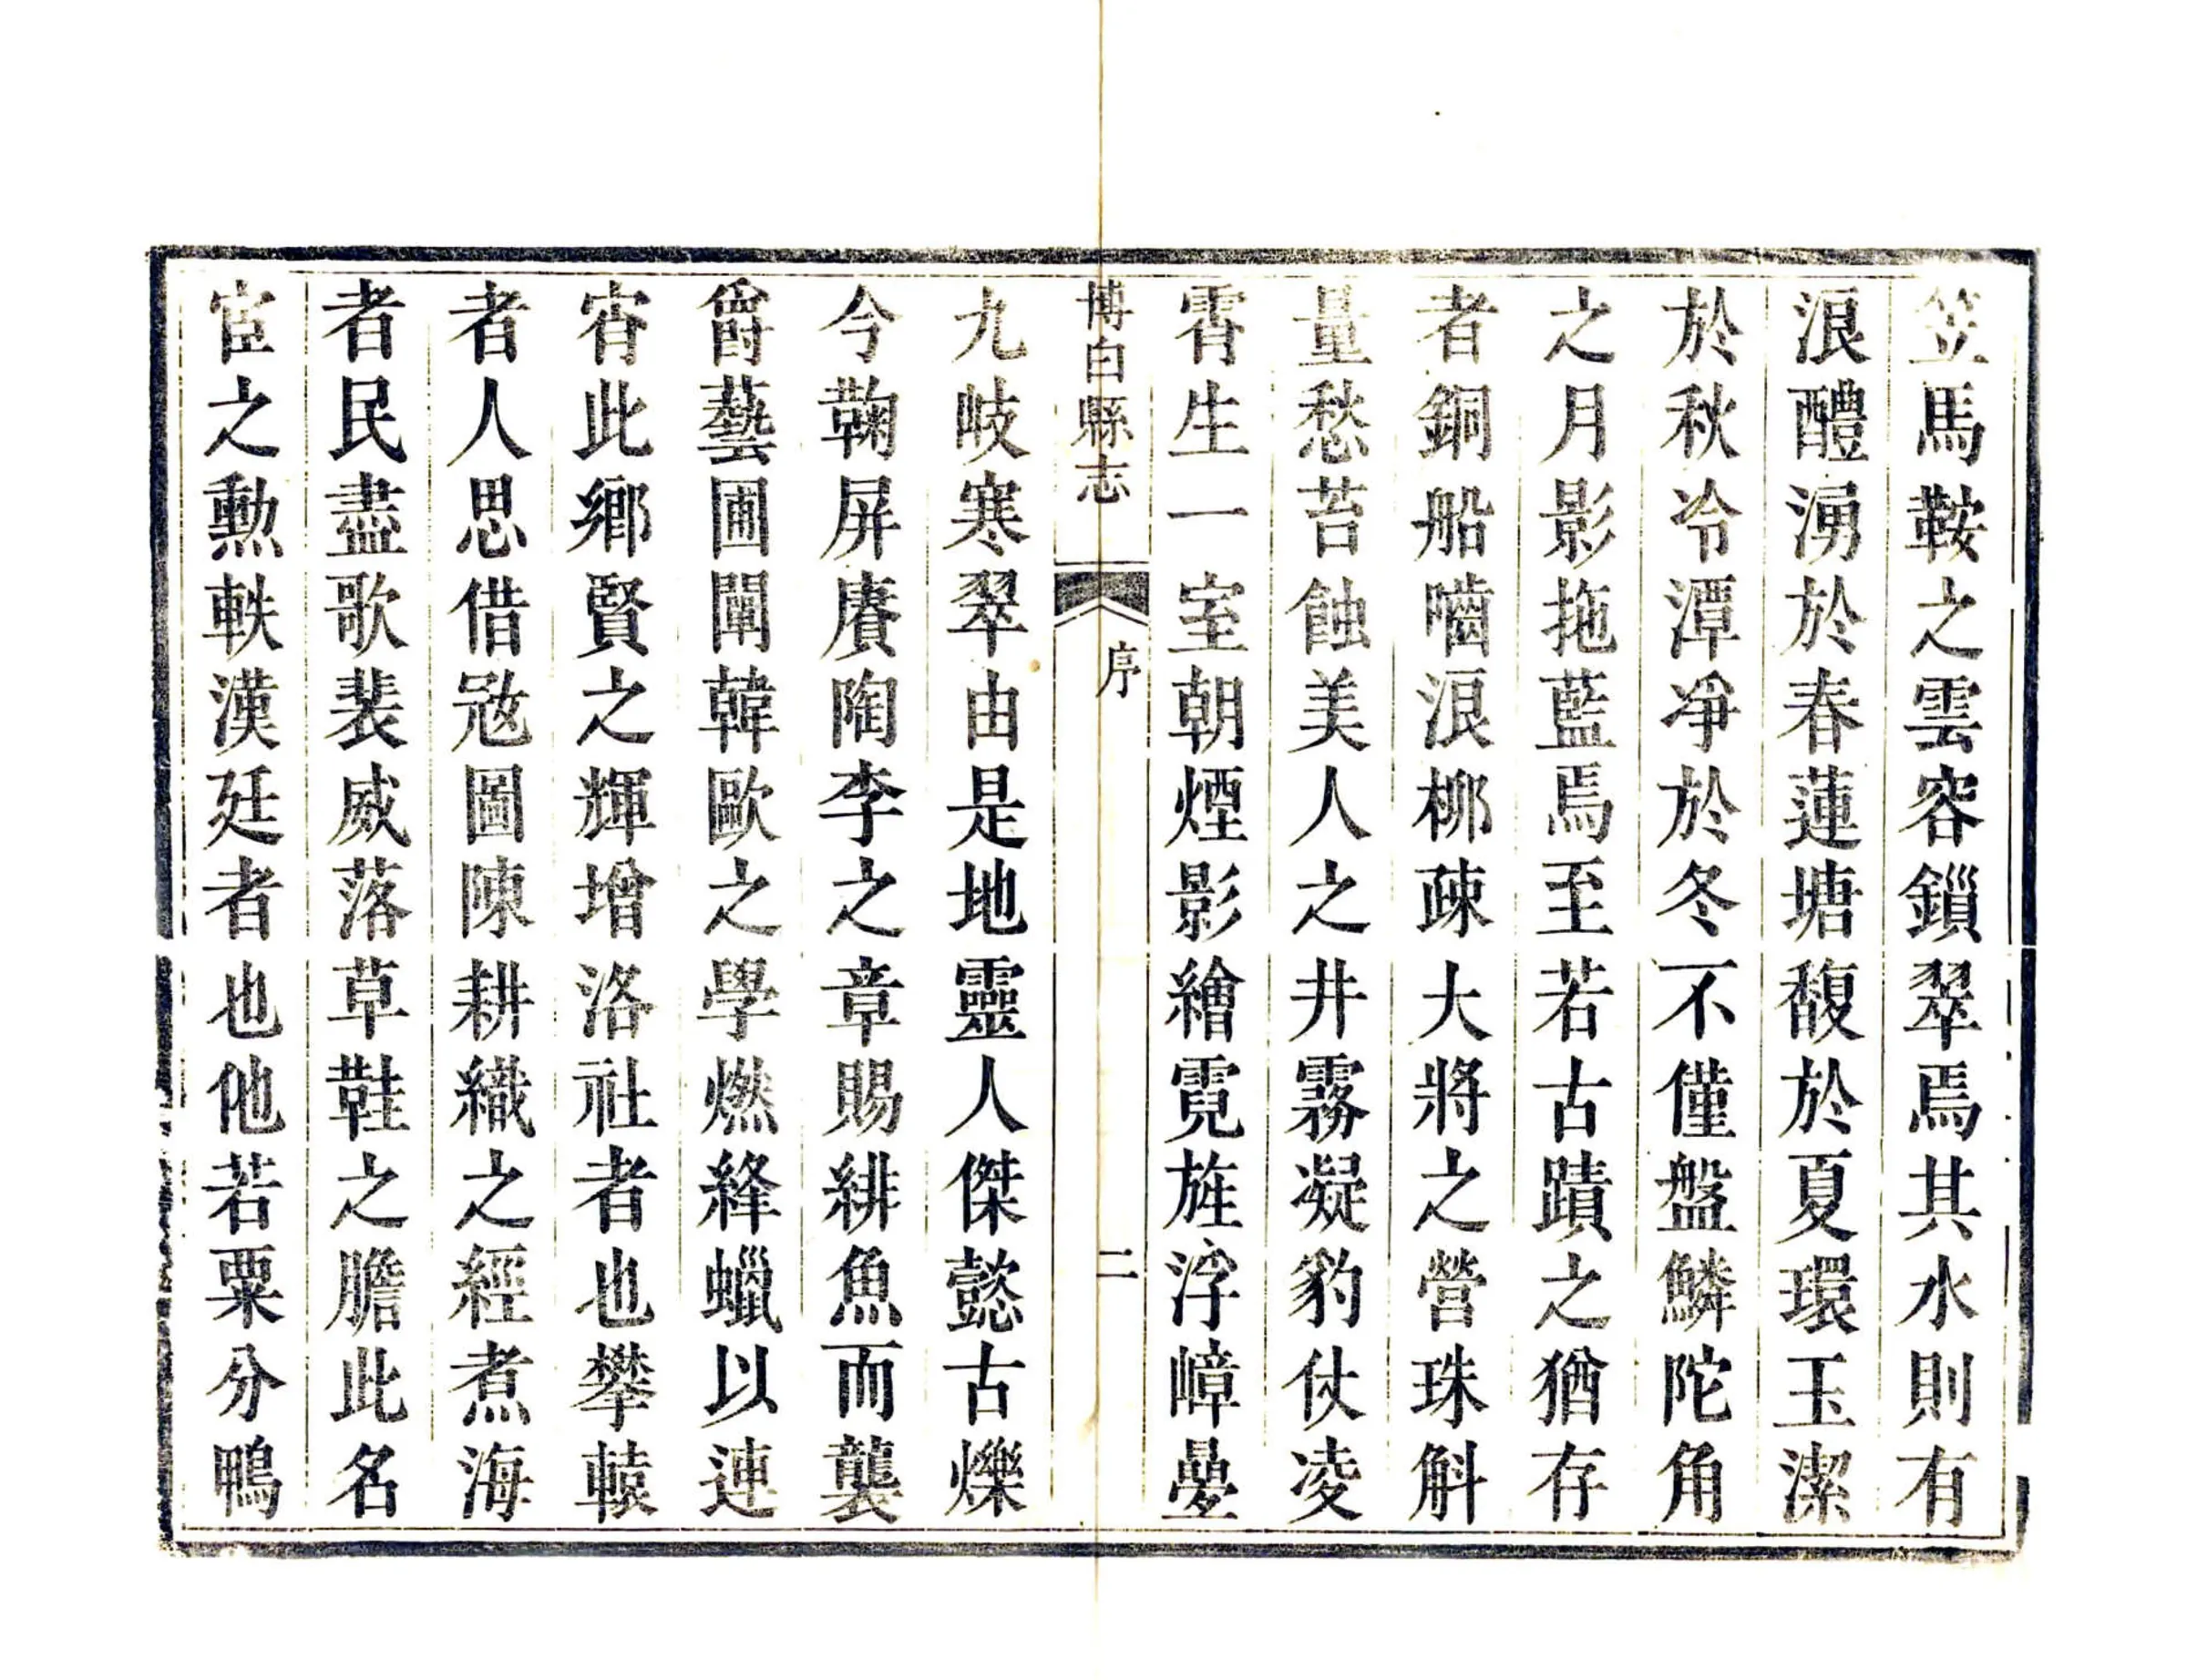 笠馬鞍之雲容鎻翠焉其水則有
浪醴湧於春蓮塘馥於夏環玉潔
於秋冷潭凈於冬不僅盤鱗陀角
之月影拖藍焉至若古蹟之猶存
者銅船嚙浪栁疎大將之營珠斛
量愁苔蝕美人之井霧凝豹仗凌
霄生一室朝煙影繪霓旌浮嶂曡
博白縣志
序
二
九岐寒翠由是地靈人傑懿古爍
今鞠屏賡陶李之章賜緋魚而襲
爵藝圃闡韓歐之學燃絳蠟以連
宵此鄉賢之輝增洛社者也攀轅
者人思借冦圖陳耕織之經煮海
者民盡歌裴威落草鞋之膽此名
宦之勲軼漢廷者也他若粟分鴨